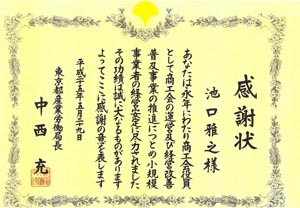 感謝状
池口雅之様
あなたは永年にわたり商工会役員
として商工会の運営及び経営改善
普及事業の推進につとめ小規模
事業者の経営安定に尽力されました
その功績は誠に大なるものがあります
よってここに感謝の意を表します
平成二十五年五月二十九日
東京都産業労働局長
中西充